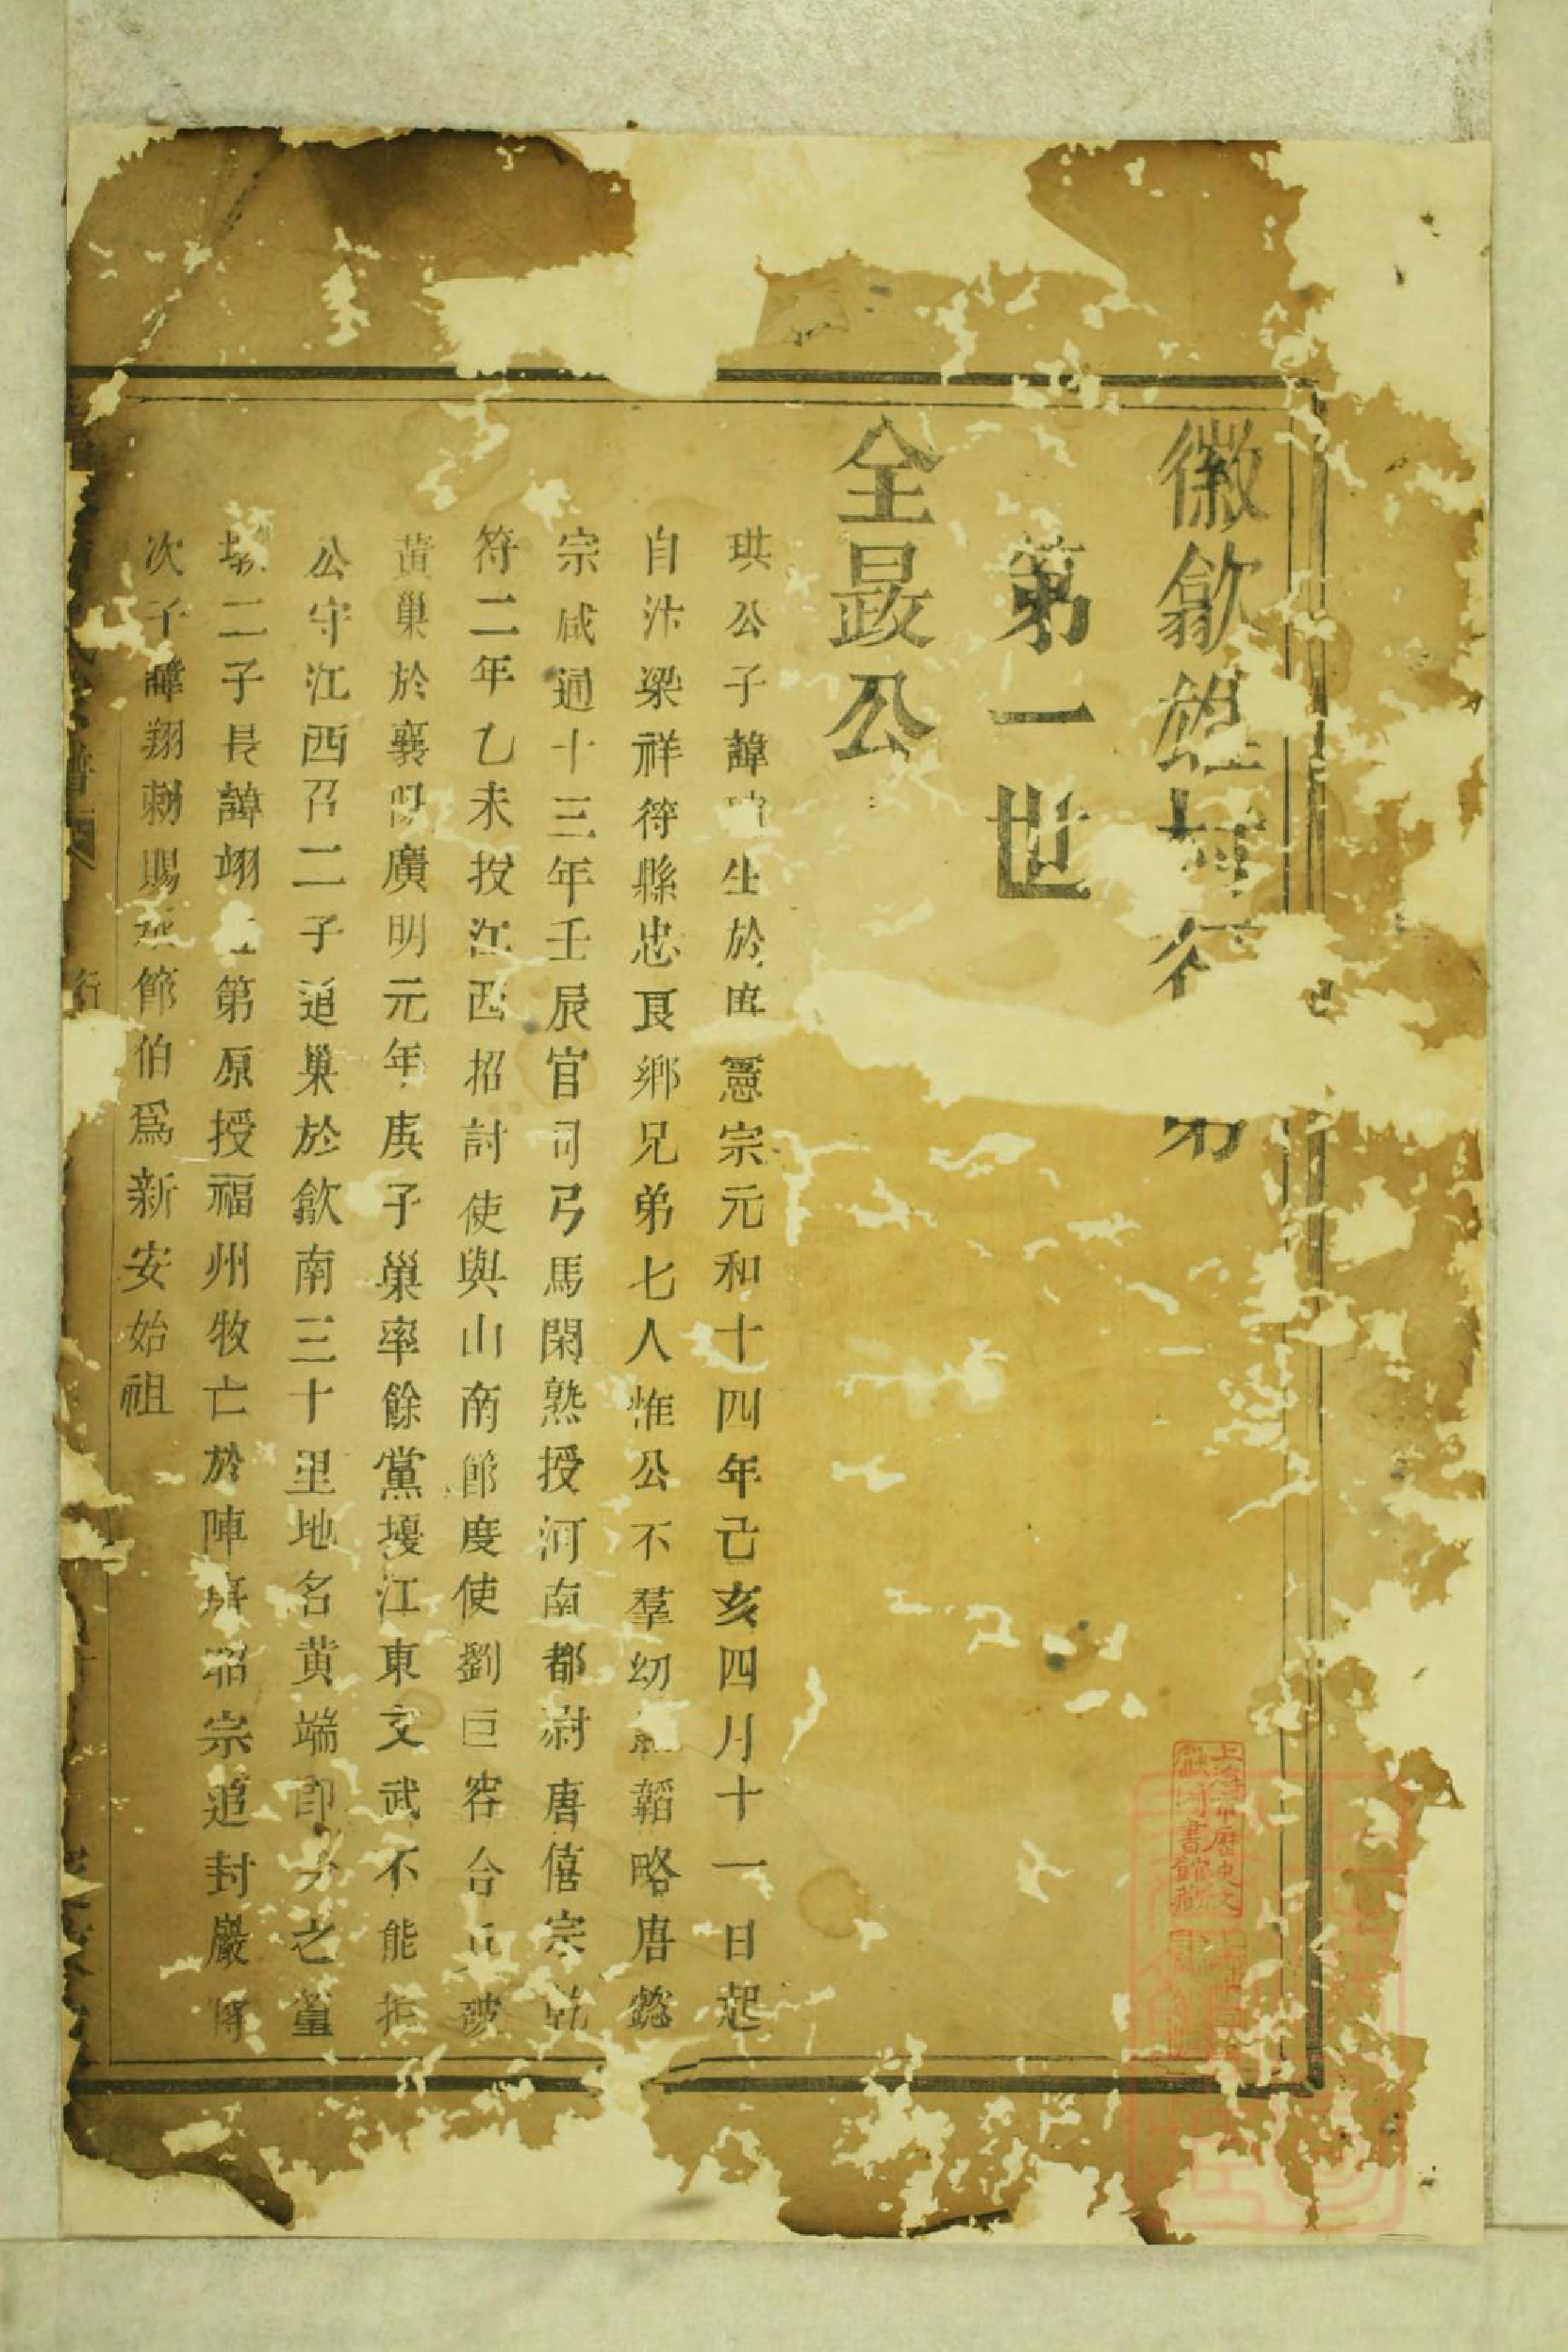 徽歙雄村行
第一世
全晸公
珙公子諱生於唐憲宗元和十四年己亥四月十一日起
自汴梁祥符縣忠良鄉兄弟七人惟公不羣幼韜略唐懿
宗咸通十三年壬辰官司弓馬閑熟授河南都尉唐僖宗乾
符二年乙未投江西招討使與山南節度使劉巨容合兵破
黃巢於襄陽廣明元年庚子巢率餘黨擾江東文武不能拒
公守江西召二子追巢於歙南三十里地名黄端即今之篁
墩二子長諱翊第原授福州牧亡於陣唐昭宗追封嚴將
次子諱翔勅賜節伯爲新安始祖
譜
行
上海市歷史文
獻圖書館藏